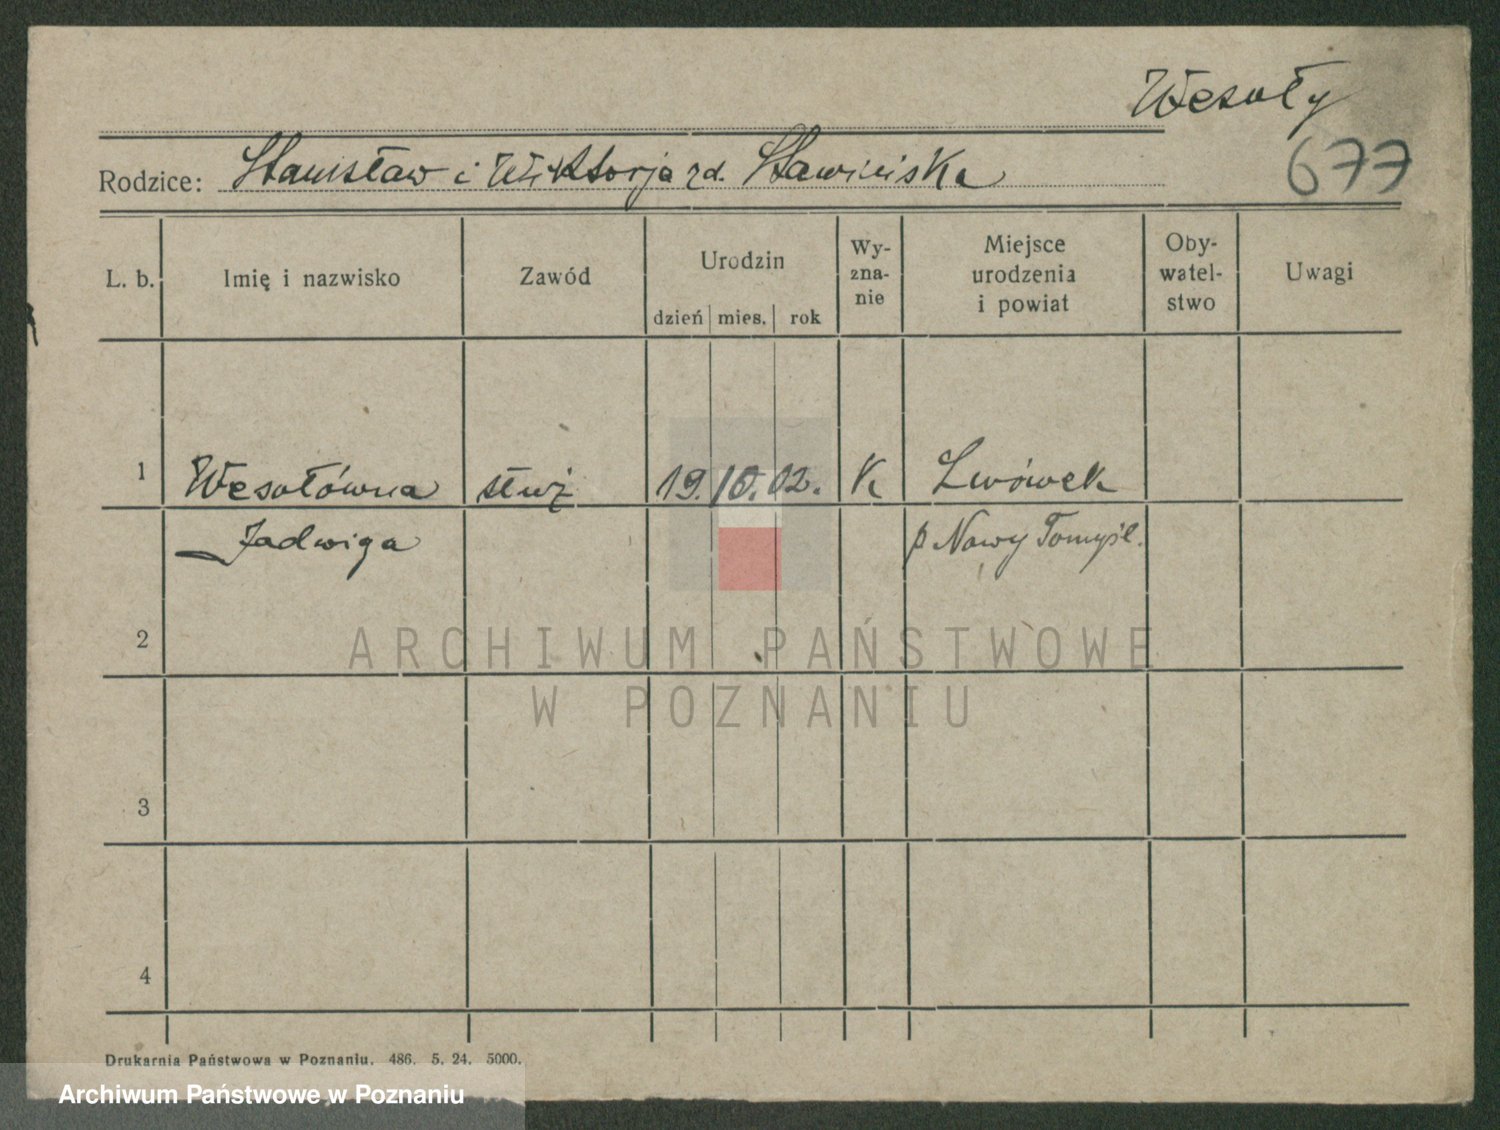 Wesoły
677
Rodzice: Stanisław i Wiktorja zd. Sławińska
L. b.
Imię i nazwisko
Zawód
Urodzin
dzień mies. rok
Wy-
zna-
nie
Miejsce
urodzenia
i powiat
Oby-
watel-
stwo
Uwagi
1 Wesołówna służ 19. 10. 02. K Lwówek
Jadwiga p Nowy Tomyśl.
2
3
4
ARCHIWUM PAŃSTWOWE
W POZNANIU
Drukarnia Państwowa w Poznaniu. 486. 5. 24. 5000.
Archiwum Państwowe w Poznaniu